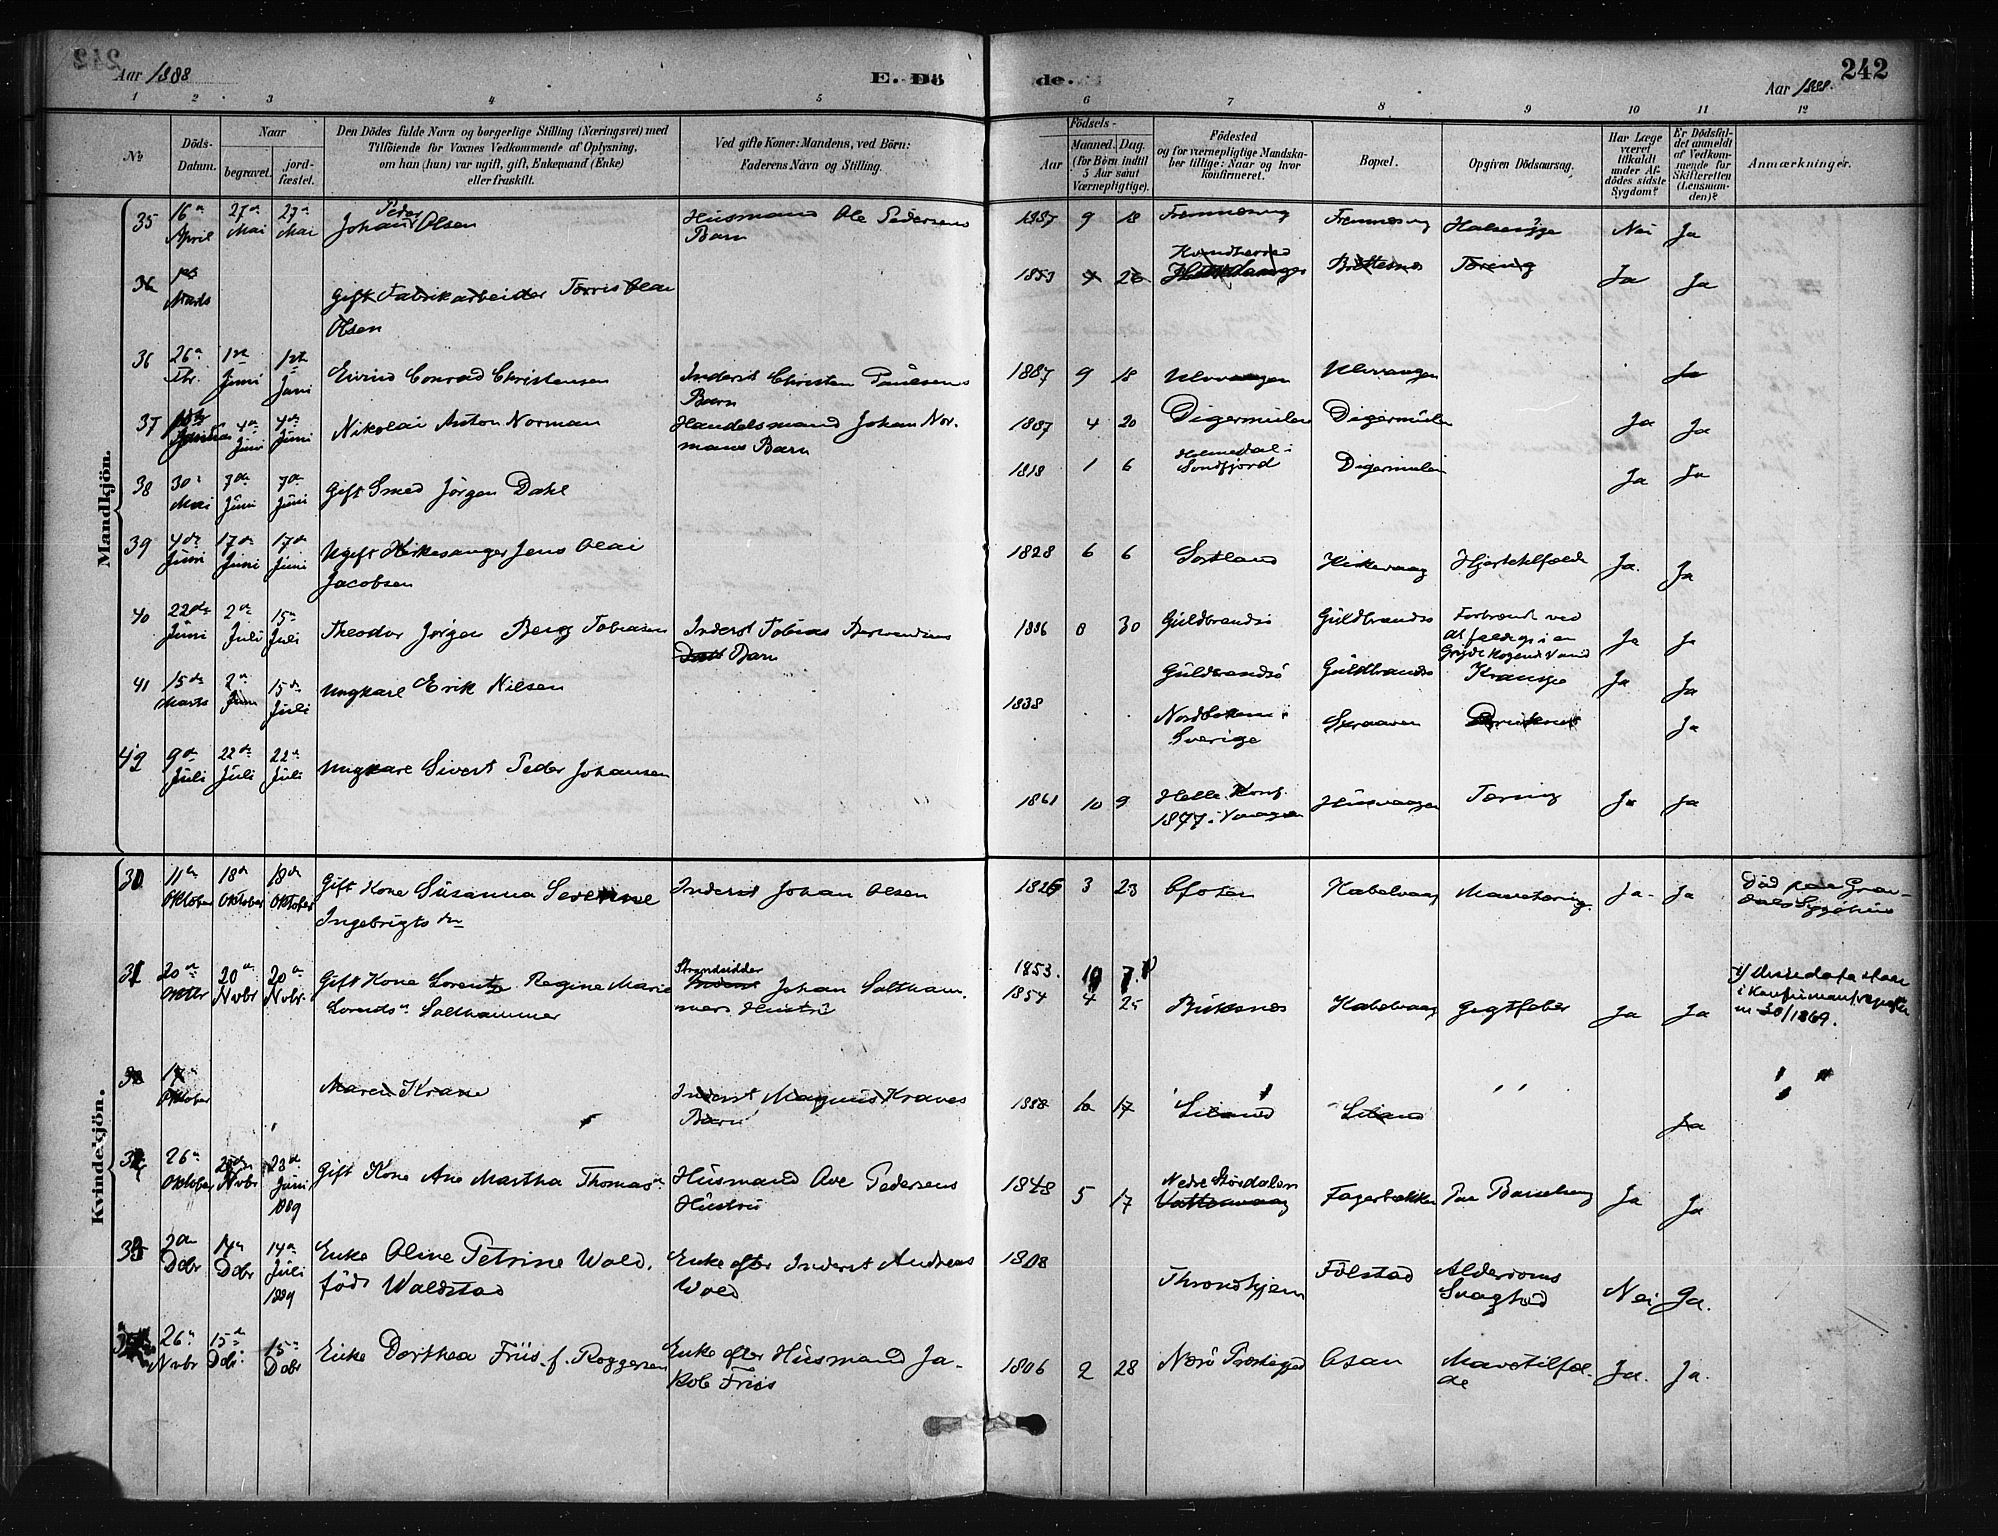 Aar 1888
E. Dö de.
242
Aar 1888.
1 2 3 4 5 6 7 8 9 10 11 12
No
Döds-Datum.
Naar
begravet.
jord-fæstet.
Den Dödes fulde Navn og borgerlige Stilling (Næringsvei) med
Tilföiende for Voxnes Vedkommende af Oplysning,
om han (hun) var ugift, gift, Enkemand (Enke)
eller fraskilt.
Ved gifte Koner: Mandens, ved Börn:
Faderens Navn og Stilling.
Födsels-
Aar
Maaned. Dag.
(for Börn indtil
5 Aar samt
Værnepligtige).
Födested
og for værnepligtige Mandska-
ber tillige: Naar og hvor
konfirmeret.
Bopæl.
Opgiven Dödsaarsag.
Har Læge
været
tilkaldt
under Af-
dödes sidste
Sygdom?
Er Dödsfal-
det anmeldt
af Vedkom-
mende for
Skifteretten
(Lensman-
den)?
Anmærkninger.
Mandkjön.
35 16de April 27de Mai 27de Mai Johan Peder Olsen Husmand Ole Pedersens Barn 1887 9 18 Fremnesvig Fremnesvig Halssyge Nei Ja
36 Marts Gift Fabrikarbeider Torris Olai Olsen 1853 26 Kvindherred Hardanger Brettesnes Tæring Ja Ja
36 26de Fbr. 1ste Juni 1ste Juni Eivind Conrad Christensen Inderst Christen Paulsens Barn 1887 9 18 Ulvvaagen Ulvvaagen Ja
37 4de Juni 4de Juni Nikolai Anton Norman Handelsmand Johan Normans Barn 1887 4 20 Digermulen Digermulen Ja Ja
38 30 Mai 7de Juni 7de Juni Gift Smed Jörgen Dahl 1818 1 6 Holmedal i Söndfjord Digermulen Ja Ja
39 4de Juni 17de Juni 17de Juni Ugift Kirkesanger Jens Olai Jacobsen 1828 6 6 Sortland Kirkevaag Hjertetilfælde Ja. Ja
40 22de Juni 2de Juli 15de Juli Theodor Jörgen Berg Tobiasen Inderst Tobias Barn 1886 8 30 Guldbrandsö Guldbrandsö Forbrændt ved at falde i en Gryde kogende Vand Ja Ja
41 15de Marts 2de Juni 15de Juli Ungkarl Erik Nilsen 1838 Guldbrandsö Guldbrandsö Krampe Ja Ja
Sverige Skraaven Druknet Ja
42 9de Juli 22de Juli 22de Juli Ungkarl Sivert Peder Johansen 1861 10 9 Helle Konf. 1877 i Vaagan Husvaagen Tæring Ja Ja
Kvindekjön.
30 11te Oktober 18de Oktober 18de Oktober Gift Kone Susanna Severine Ingebrigtsdtr Inderst Johan Olsen 1826 3 23 Ofoten Kabelvaag Mavetæring. Ja. Ja Död paa Gravdals Sygehus
31 20de Oktbr 20de Nvbr 20de Nvbr. Gift Kone Lorentze Regine Marie Lorendsdr Salthammer Strandsidder Johan Salthammers Hustru 1853. 1854 4 25 Buksnes Kabelvaag Gigtfeber Ja Ja 1869.
Oktober Maren Krane Inderst Magnus Kranes Barn 1888 10 17 Liland Liland Ja
32 26de Oktober Nvbr 23de Juni 1889 Gift Kone Ane Martha Thomasdr Husmand Ole Pedersens Hustru 1848 5 17 Nedre Stördalen Fagerbakken Paa Barselseng Ja Ja
33 2den Debr 14de Debr 14de Juli 1889 Enke Oline Petrine Wold. född Waldstad Enke efter Inderst Andreas Wold 1808 Throndhjem Fölstad Alderdoms Svaghed Nei Ja.
26de Nvbr 15de Debr. 15de Debr Enke Dorthea Friis f. Roggersen Enke efter Husmand Jakob Friis 1806 2 28 Nærö Præstegjed Osan Mavetilfælde Ja. Ja.